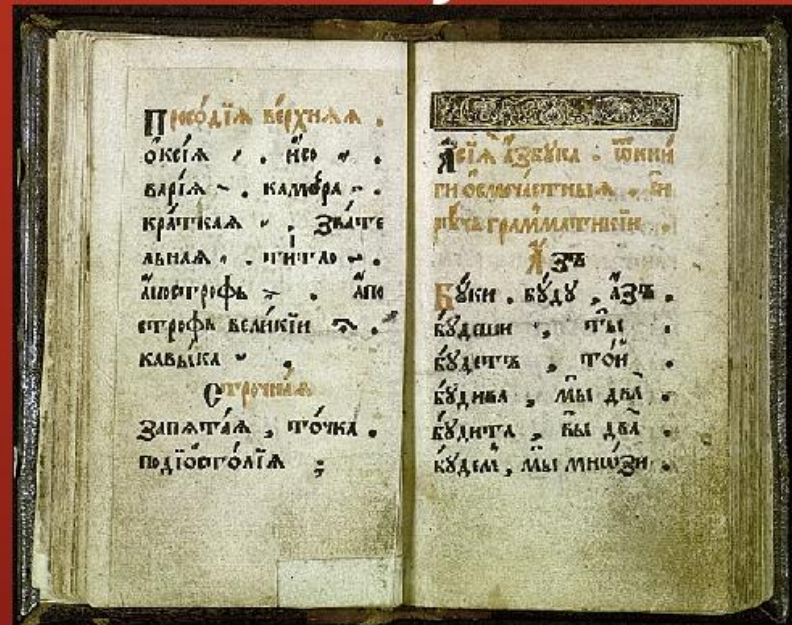 Просѡ́дїѧ ве́рхнѧѧ .
ѻ҆ксі́ѧ ́ . и҆́со ҆ .
варі́ѧ ̀ . камо́ра ̑ .
кра́ткаѧ ̆ . Зва́те
льнаѧ ҆ . ти́тло ҃ .
а҆по́строфь . а҆по
строфь вели́кїи .
кавы́ка .
Стро́чнаѧ
Запѧта́ѧ , то́чка .
подїѡстолі́ѧ ;
А҆сїѧ̀ а҆́збꙋка . ѿ кни
ги ѻ҆смоча́стныѧ .
грамма́тикїи .
А҆́зъ
Бꙋ́ки . бꙋ́дꙋ , а҆́зъ .
бꙋ́деши , ты̀ .
бꙋ́детъ , то́й .
бꙋ́дива , мы̀ два̀ .
бꙋ́дита , вы̀ два̀ .
бꙋ́демъ , мы̀ мно́зи .